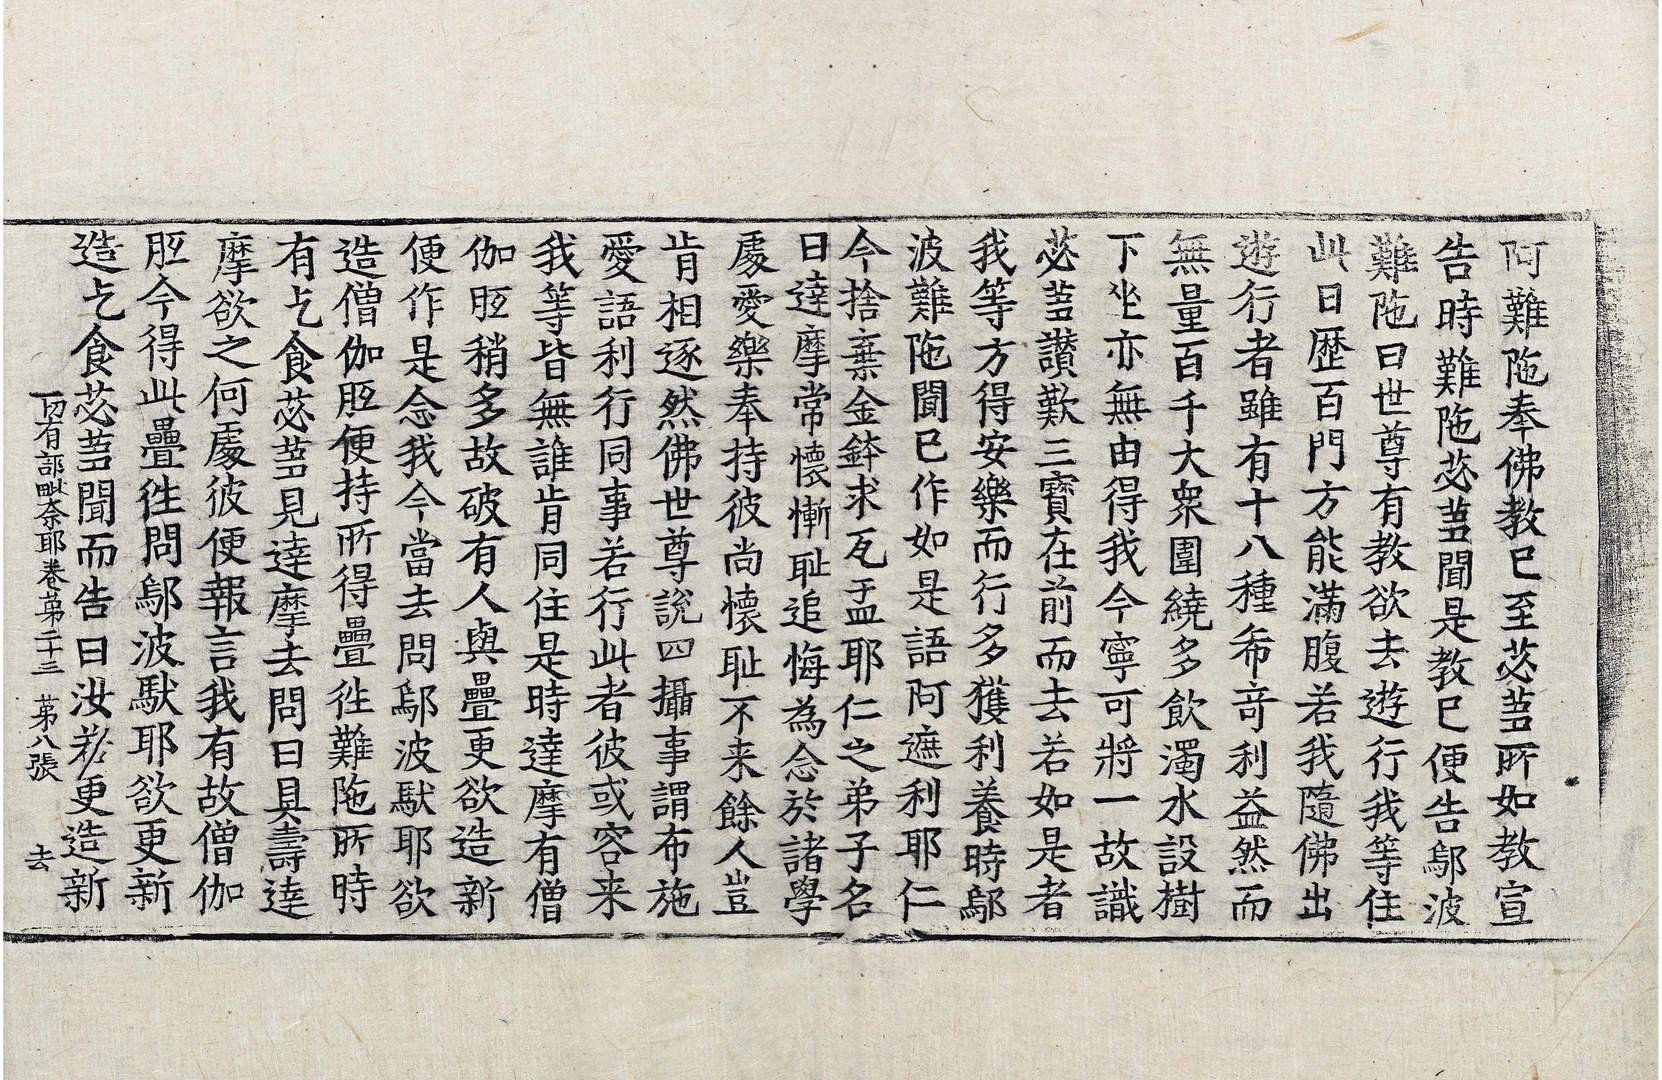 阿難陁奉佛教已至苾芻所如教宣
告時難陁苾芻聞是教已便告鄔波
難陁曰世尊有教欲去遊行我等住
此日歷百門方能滿腹若我隨佛出
遊行者雖有十八種希竒利益然而
無量百千大衆圍繞多飲濁水設樹
下坐亦無由得我今寧可將一故識
苾芻讃歎三寶在前而去若如是者
我等方得安樂而行多獲利養時鄔
波難陁聞已作如是語阿遮利耶仁
今捨棄金鉢求瓦盂耶仁之弟子名
曰達摩常懷慚耻追悔為念於諸學
處愛樂奉持彼尚懷耻不来餘人豈
肯相逐然佛世尊說四攝事謂布施
愛語利行同事若行此者彼或容来
我等皆無誰肯同住是時達摩有僧
伽胝稍多故破有人與疊更欲造新
便作是念我今當去問鄔波馱耶欲
造僧伽胝便持所得疊往難陁所時
有乞食苾芻見達摩去問曰具壽達
摩欲之何處彼便報言我有故僧伽
胝今得此疊往問鄔波馱耶欲更新
造乞食苾芻聞而告曰汝若更造新
一切有部毗奈耶卷第二十三　第八張　去